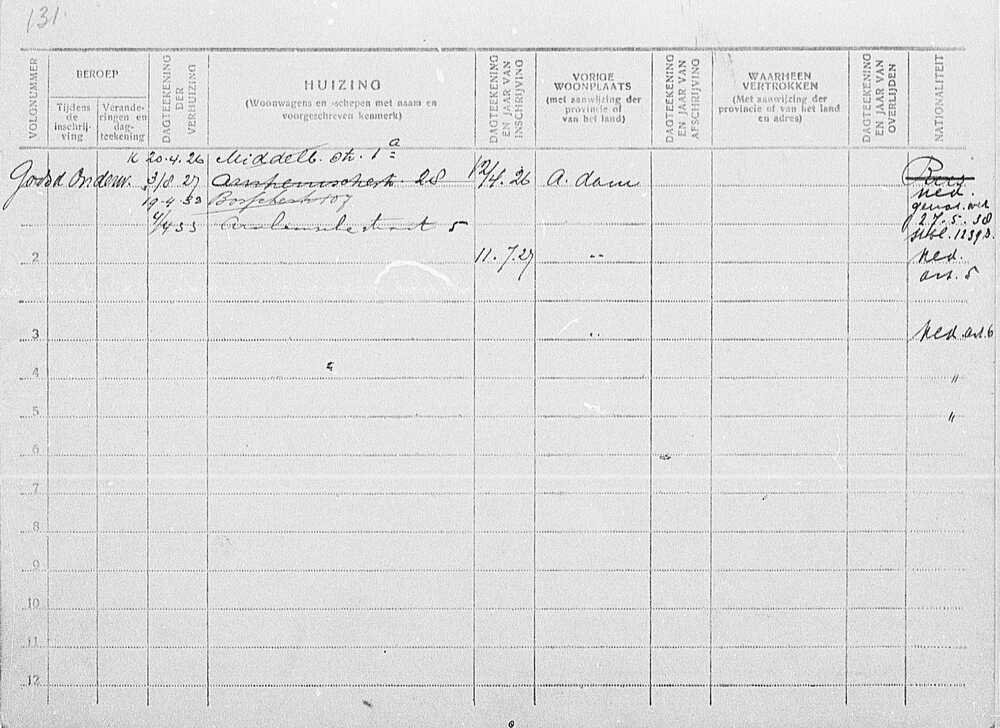 131
VOLGNUMMER
BEROEP
Tijdens de inschrij-ving
Verande-ringen en dag-teekening
DAGTEEKENING DER VERHUIZING
HUIZING
(Woonwagens en -schepen met naam en voorgeschreven kenmerk)
DAGTEEKENING EN JAAR VAN INSCHRIJVING
VORIGE WOONPLAATS
(met aanwijzing der provincie of van het land)
DAGTEEKENING EN JAAR VAN AFSCHRIJVING
WAARHEEN VERTROKKEN
(Met aanwijzing der provincie of van het land en adres)
DAGTEEKENING EN JAAR VAN OVERLIJDEN
NATIONALITEIT
K 20.4.26 Middelb. str. 1a
Godsd. Onderw. 3/8 27 28 12/4.26 A.dam
Ned.
19-4-33 107
27.5.38
4/4 33 5
stbl. 1239
2 11.7.27 " Ned.
art. 5
3 " Ned. art. 6
4 "
5 "
6
7
8
9
10
11
12